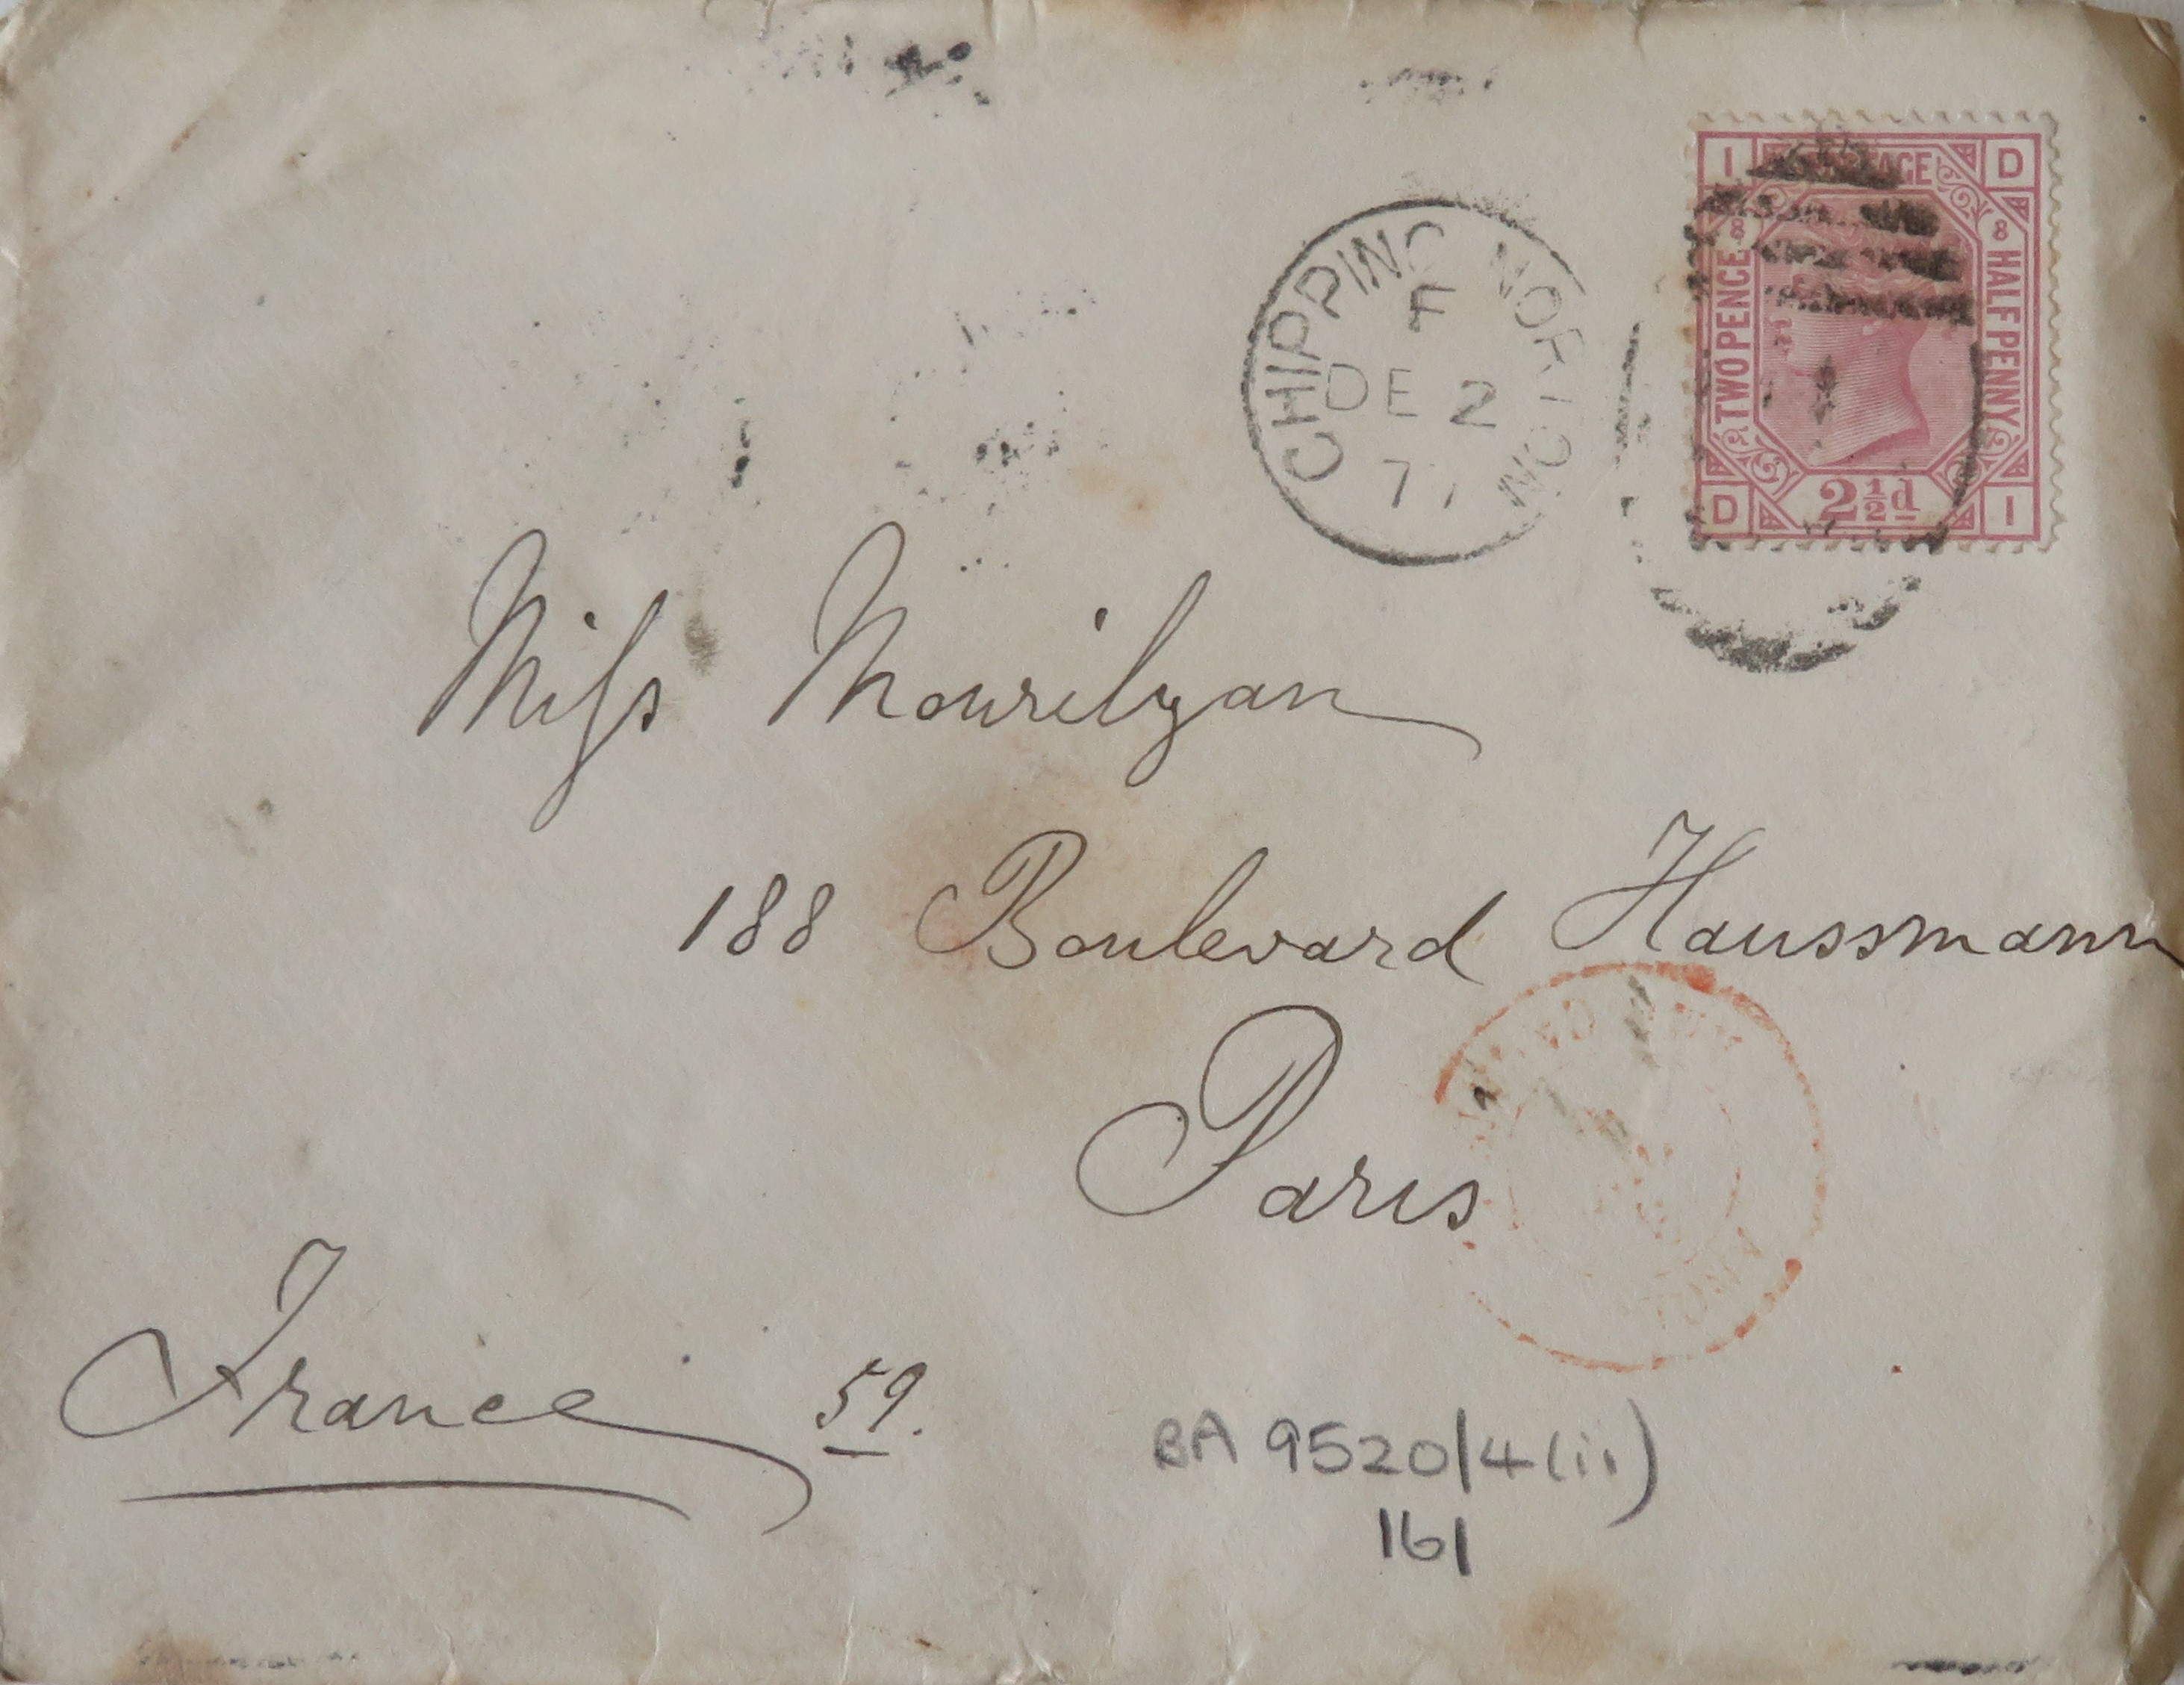 I POSTAGE D
8 8
TWO PENCE HALFPENNY
D 2½d I
CHIPPING NORTON
F
DE 2
77
Miss Mourilyan
188 Boulevard Haussmann
Paris
France 59.
BA 9520/4(ii)
161